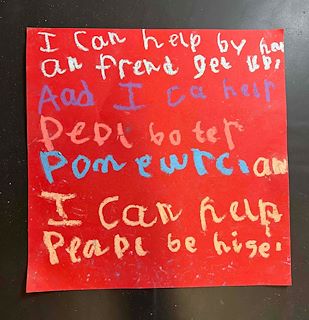 I Can help by ha
an frend get up.
And I ca help
Pepl bo ter
Pome wrc. an
I Can help
Peapl be hise.